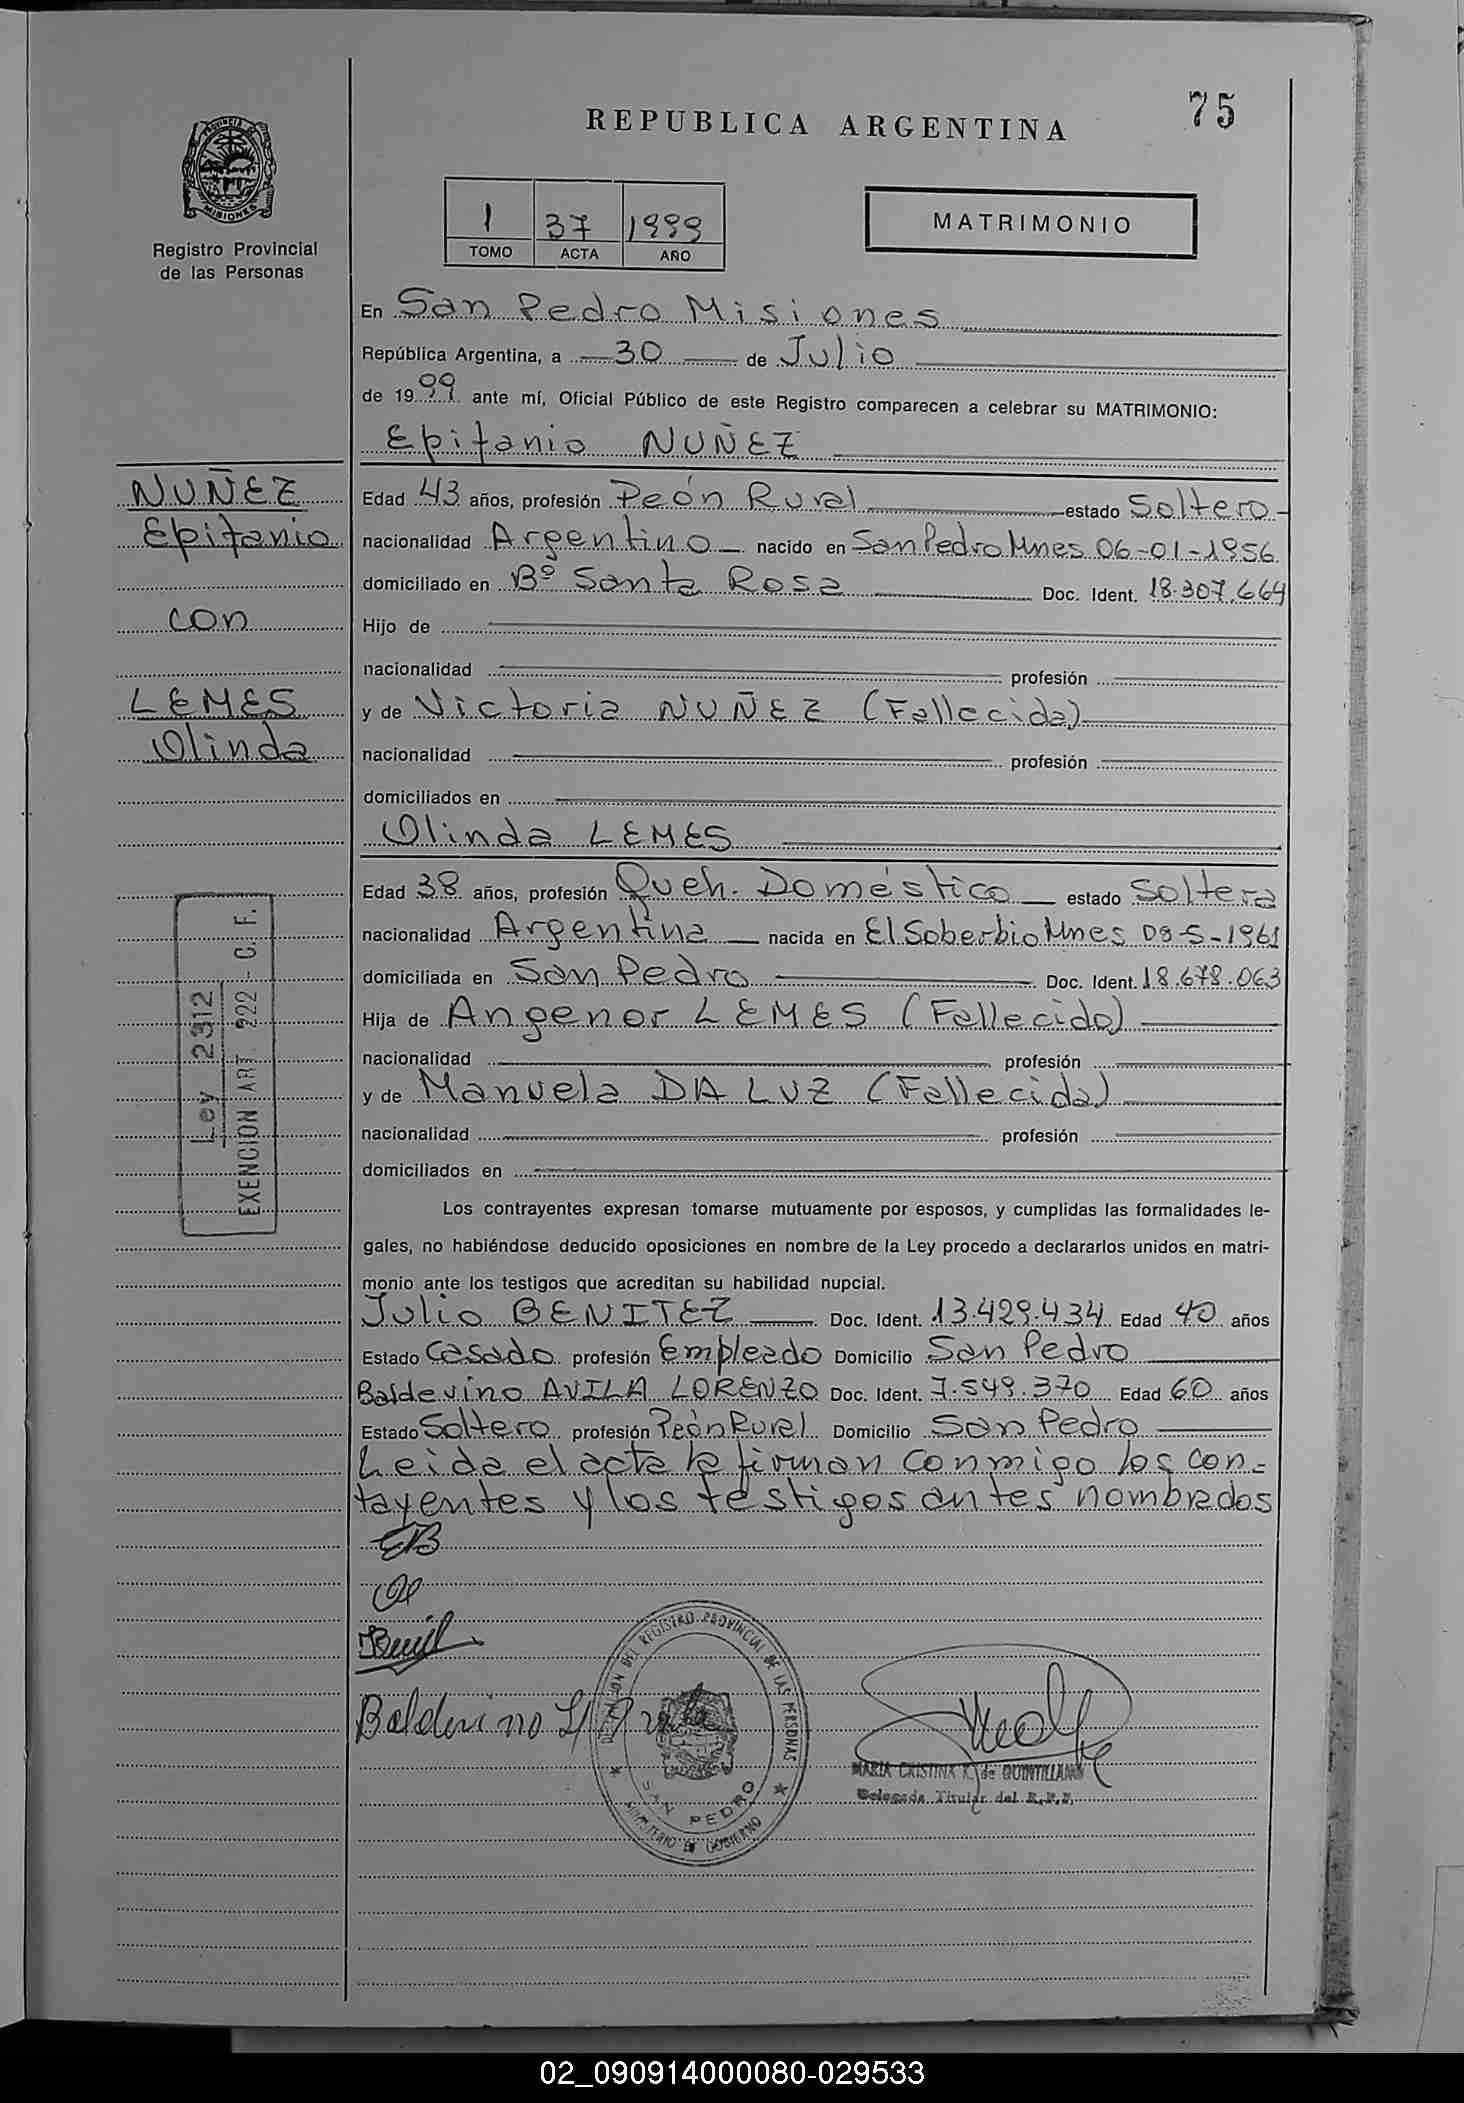 75
REPUBLICA ARGENTINA
PROVINCIA DE
MISIONES
Registro Provincial
de las Personas
1 37 1999
TOMO ACTA AÑO
MATRIMONIO
En San Pedro Misiones
República Argentina, a 30 de Julio
de 1999 ante mí, Oficial Público de este Registro comparecen a celebrar su MATRIMONIO:
Epifanio NUÑEZ
NUÑEZ
Epifanio
con
LEMES
Olinda
Edad 43 años, profesión Peón Rural estado Soltero
nacionalidad Argentino nacido en San Pedro Mnes 06-01-1956
domiciliado en Bº Santa Rosa Doc. Ident. 18.307.664
Hijo de
nacionalidad profesión
y de Victoria NUÑEZ (Fallecida)
nacionalidad profesión
domiciliados en
Olinda LEMES
Edad 38 años, profesión Queh. Doméstico estado Soltera
nacionalidad Argentina nacida en El Soberbio Mnes 09-5-1961
domiciliada en San Pedro Doc. Ident. 18.678.063
Hija de Angenor LEMES (Fallecido)
nacionalidad profesión
y de Manuela DA LUZ (Fallecida)
nacionalidad profesión
domiciliados en
Ley 2312
EXENCION ART. 222 - C. F.
Los contrayentes expresan tomarse mutuamente por esposos, y cumplidas las formalidades le-
gales, no habiéndose deducido oposiciones en nombre de la Ley procedo a declararlos unidos en matri-
monio ante los testigos que acreditan su habilidad nupcial.
Julio BENITEZ Doc. Ident. 13.429.434 Edad 40 años
Estado Casado profesión Empleado Domicilio San Pedro
Baldevino AVILA LORENZO Doc. Ident. 7.549.370 Edad 60 años
Estado Soltero profesión Peón Rural Domicilio San Pedro
Leida el acta la firman conmigo los con-
tayentes y los testigos antes nombrados
DEL REGISTRO PROVINCIAL DE LAS PERSONAS
SAN PEDRO
MINISTERIO DE GOBIERNO
MARIA CRISTINA K. de QUINTILLAN
Delegada Titular del R.P.P.
02_090914000080-029533